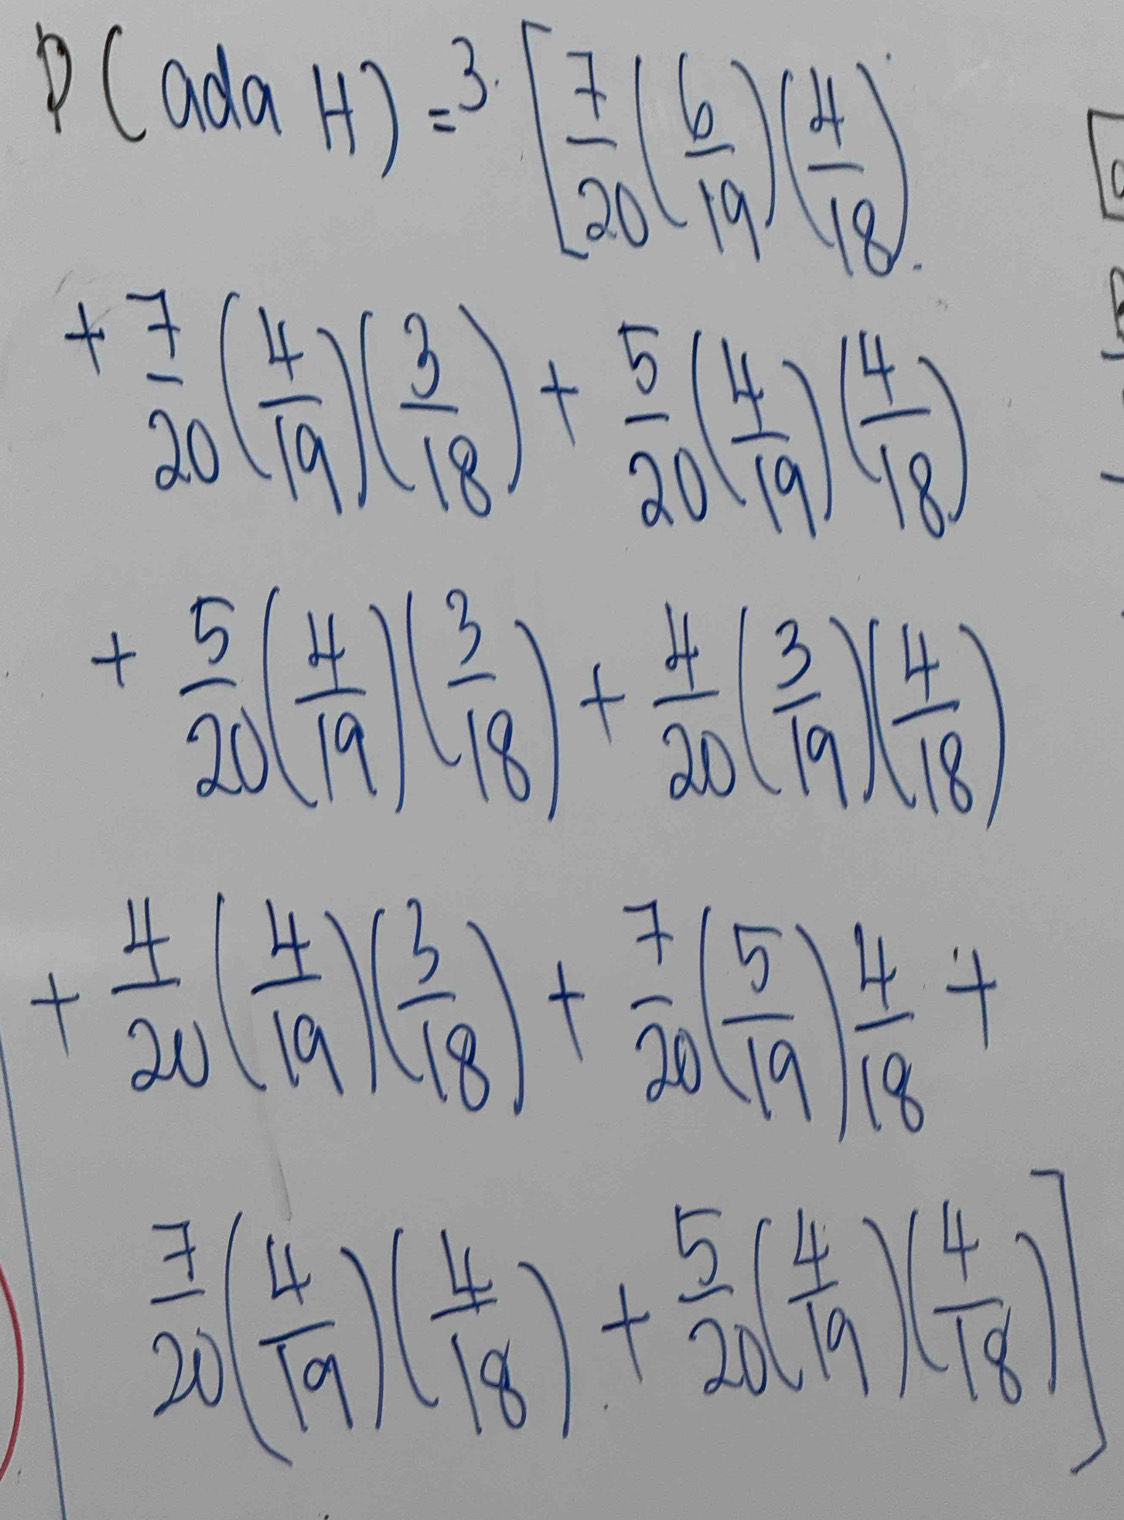 P(ada H) = 3 [ 7/20 (6/19)(4/18)
+ 7/20 (4/19)(3/18) + 5/20 (4/19)(4/18)
+ 5/20 (4/19)(3/18) + 4/20 (3/19)(4/18)
+ 4/20 (4/19)(3/18) + 7/20 (5/19) 4/18 +
7/20 (4/19)(4/18) + 5/20 (4/19)(4/18) ]